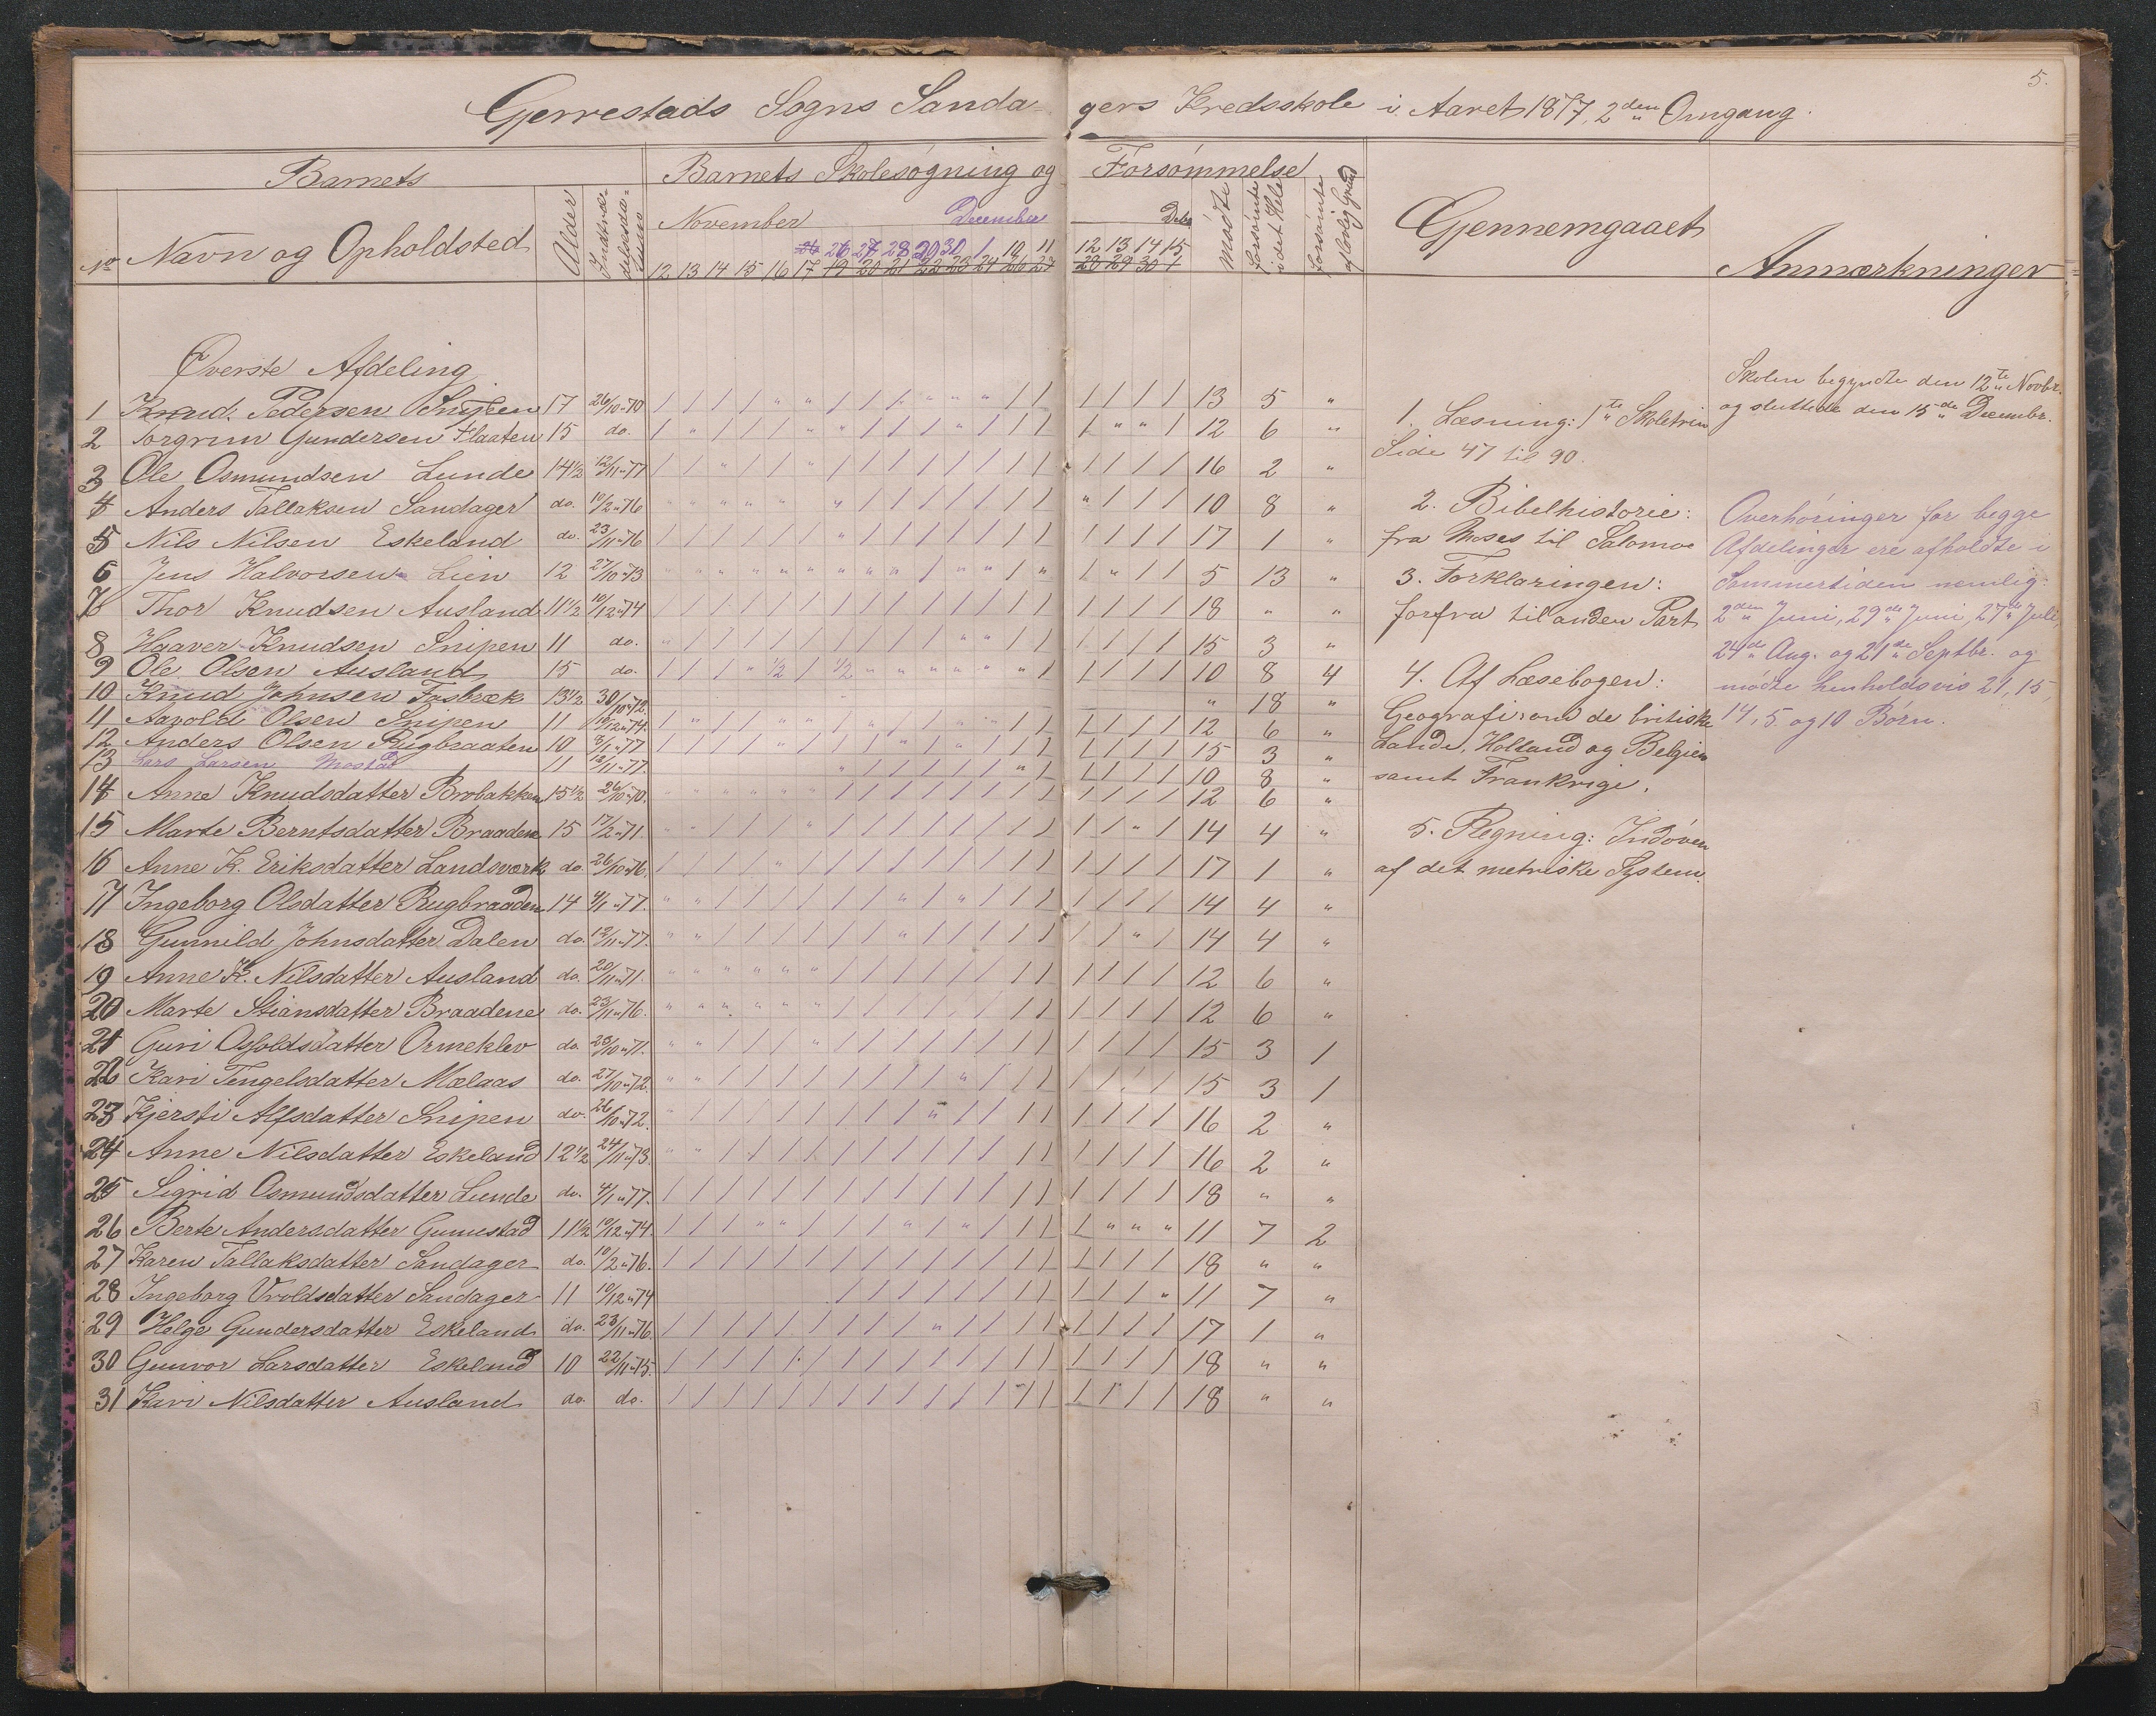 5.
Gjerrestads Sogns Sandagers Kredsskole i Aaret 1877, 2den Omgang.
Barnets
Barnets Skolesøgning og Forsømmelse
No Navn og Opholdsted
Alder
Indtrædelsesdatum
November December Debr
26 27 28 29 30 1 10 11 12 13 14 15
12 13 14 15 16 17 19 20 21 22 23 24 26 27 28 29 30 1
Mødte
forsømte i det Hele
forsømte af lovlig Grund
Gjennemgaaet
Anmærkninger
Øverste Afdeling
1 Knud Pedersen Snipen 17 26/10 70 13 5 "
2 Torgrim Gundersen Flaaten 15 do. 12 6 "
3 Ole Osmundsen Lunde 14 1/2 12/11 77 16 2 "
4 Anders Tallaksen Sandager do. 10/2 76 10 8 "
5 Nils Nilsen Eskeland do. 23/11 76 17 1 "
6 Jens Halvorsen Lien 12 27/10 73 5 13 "
7 Thor Knudsen Ausland 11 1/2 10/12 74 18 " "
8 Haaver Knudsen Snipen 11 do. 15 3 "
9 Ole Olsen Ausland 15 do. 1/2 1/2 10 8 4
10 Knud Johnsen Fosbræk 13 1/2 30/10 72 " 18 "
11 Aavold Olsen Snipen 11 10/12 74. 12 6 "
12 Anders Olsen Rugbraaten 10 /1 77 15 3 "
13 Lars Larsen Mostad 11 /11 77. 10 8 "
14 Anne Knudsdatter Brobakken 15 1/2 26/10 70. 12 6 "
15 Marte Berntsdatter Braadene 15 17/2 71. 14 4 "
16 Anne K. Eriksdatter Landsværk do. 26/10 76. 17 1 "
17 Ingeborg Olsdatter Rugbraaden 14 4/1 77. 14 4 "
18 Gunnild Johnsdatter Dalen do. 12/11 77. 14 4 "
19 Anne K. Nilsdatter Ausland do. 20/11 71. 12 6 "
20 Marte Stiansdatter Braadene do. 23/11 76. 12 6 "
21 Guri Osfoldsdatter Ormeklev do. 25/10 71. 15 3 1
22 Kari Tengelsdatter Mælaas do. 27/10 72. 15 3 1
23 Kjersti Alfsdatter Snipen do. 26/10 72. 16 2 "
24 Anne Nilsdatter Eskeland 12 1/2 24/11 73. 16 2 "
25 Sigrid Osmundsdatter Lunde do. 4/1 77. 18 " "
26 Berte Andersdatter Gunnestad 11 1/2 10/12 74. 11 7 2
27 Karen Tallaksdatter Sandager do. 10/2 76. 18 " "
28 Ingeborg Vroldsdatter Sandager 11 10/12 74 11 7 "
29 Helge Gundersdatter Eskeland do. 23/11 76 17 1 "
30 Gunvor Larsdatter Eskeland 10 22/11 75. 18 " "
31 Kari Nilsdatter Ausland do. do. 18 " "
1. Læsning: 1te Skoletrin
Side 47 til 90.
2. Bibelhistorie:
fra Moses til Salomo
3. Forklaringen:
forfra til anden Part
4. Af Læsebogen:
Geografi om de britiske
Lande, Holland og Belgien
samt Frankrige.
5. Regning: Indøven
af det metriske System.
Skolen begyndte den 12te Novbr.
og sluttede den 15de Decembr.
Overhøringer for begge
Afdelinger ere afholdte i
Sommertiden nemlig:
2den Juni, 29de Juni, 27de Juli,
24de Aug. og 21de Septbr. og
mødte henholdsvis 21, 15,
14, 5 og 10 Børn.